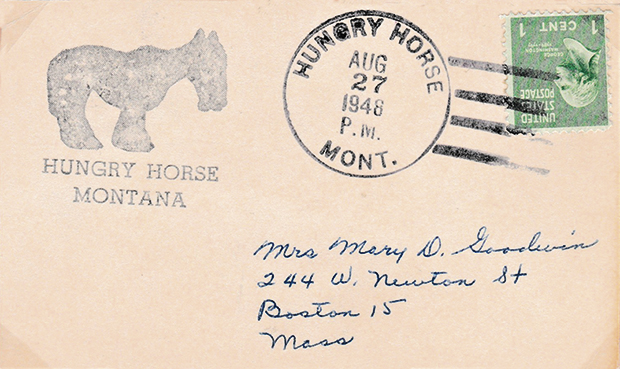 HUNGRY HORSE
MONTANA
HUNGRY HORSE
AUG
27
1948
P.M.
MONT.
UNITED
STATES
POSTAGE
GEORGE
WASHINGTON
1789-1797
1 CENT 1
Mrs Mary D. Goodwin
244 W. Newton St
Boston 15
Mass